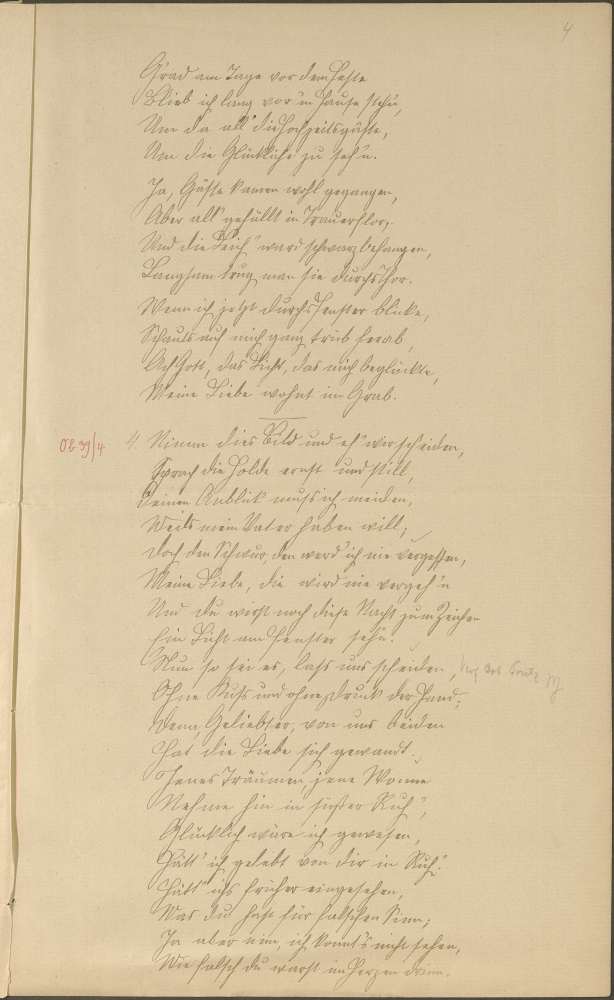 4
Grad am Tage vor dem Feste
Blieb ich lang vor'm Hause stehn,
Um da all' die Hochzeitsgäste,
Um die Glückliche zu seh'n.
Ja, Gäste kamen wohl gegangen,
Aber all' gehüllt in Trauerflor,
Und die Leich' ward schwarz behangen,
Langsam trug man sie durchs Thor.
Wenn ich jetzt durchs Fenster blicke,
Schauts auf mich ganz trüb herab,
Ach Gott, das Licht, das mich beglückte,
Meine Liebe wohnt im Grab.
Ob 39/4 4. Nimm dies Bild und eh' wir scheiden,
Sprach die Holde ernst und still,
Deinen Anblick muß ich meiden,
Weils mein Vater haben will;
Doch den Schwur, den werd' ich nie vergessen,
Meine Liebe, die wird nie vergeh'n
Und du wirst noch diese Nacht zum Zeichen
Ein Licht am Fenster sehn.
Nun so sei es, laß uns scheiden,
Ohne Kuß und ohne Druck der Hand;
Denn, Geliebter, von uns beiden
Hat die Liebe sich gewandt.
Jenes Träumen, jene Wonne
Nehme hin in süßer Ruh',
Glücklich wäre ich gewesen,
Hätt' ich gelebt von dir in Ruh'.
Hätt' ichs früher eingesehen,
Was du hast für falschen Sinn;
Ja aber nein, ich konnt's nicht sehen,
Wie falsch du warst im Herzen drinn.